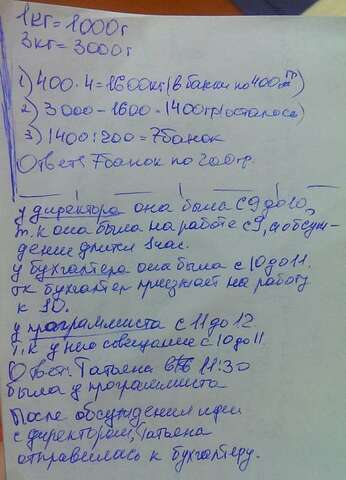 1кг=1000г
3кг=3000г
1) 400·4=1600кг(в банки по 400 гр)
2) 3000-1600=1400гр(осталось)
3) 1400:200=7банок
Ответ: 7банок по 200гр.
у директора она была с 9 до 10,
т.к она была на работе с 9, а обсуж-
дение длится 1 час.
у бухгалтера она была с 10 до 11.
тк бухгалтер приезжает на работу
к 10.
у программиста с 11 до 12
т.к у него совещание с 10 до 11
Ответ: Татьяна в 11:30
была у программиста
После обсуждения идеи
с директором, Татьяна
отправилась к бухгалтеру.